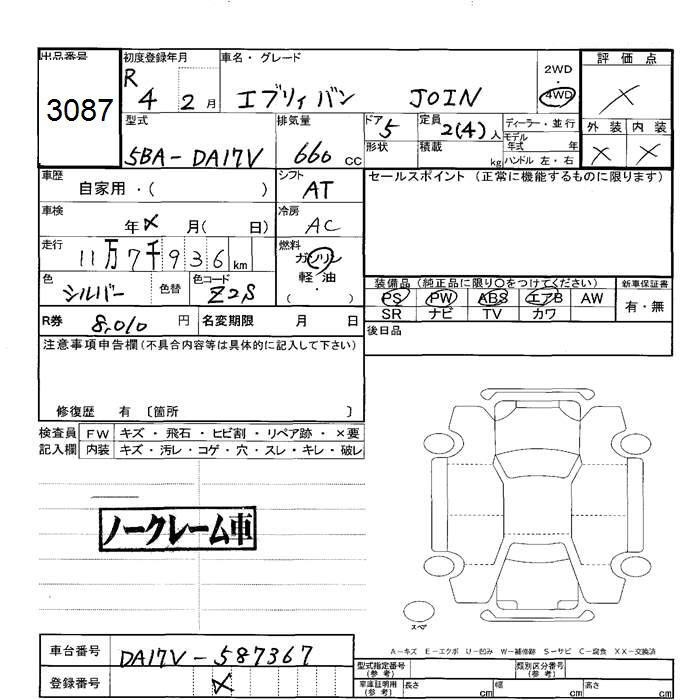 出品番号 初度登録年月 車名・グレード 2WD 評価点
3087 R 4 2月 エブリィバン JOIN 4WD ×
型式 排気量 ドア 定員 ディーラー・並行 外装 内装
5BA-DA17V 660 cc 5 2(4)人 モデル年式 年 × ×
形状 積載 kg ハンドル 左・右
車歴 自家用・( ) シフト AT セールスポイント (正常に機能するものに限ります)
車検 年 × 月( 日) 冷房 AC
走行 11万7千936 km 燃料 ガソリン
軽・油
( )
色 シルバー 色替 色コード Z2S 装備品 (純正品に限り○をつけてください) 新車保証書
PS PW ABS エアB AW 有・無
SR ナビ TV カワ
R券 8,010 円 名変期限 月 日 後日品
注意事項申告欄 (不具合内容等は具体的に記入して下さい)
修復歴 有 〔箇所 〕
検査員 FW キズ・飛石・ヒビ割・リペア跡・×要
記入欄 内装 キズ・汚レ・コゲ・穴・スレ・キレ・破レ
ノークレーム車
スペア
A-キズ E-エクボ U-凹み W-補修跡 S-サビ C-腐食 XX-交換済
車台番号 DA17V-587367 型式指定番号(参考) 類別区分番号(参考)
登録番号 × 車庫証明用(参考) 長さ cm 幅 cm 高さ cm